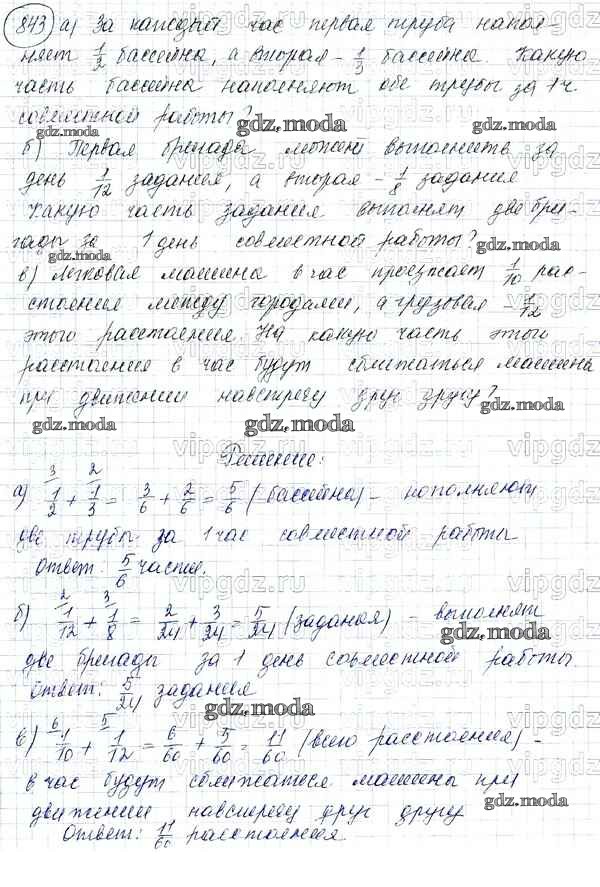 843 а) За каждый час первая труба напол-
няет 1/2 бассейна, а вторая - 1/3 бассейна. Какую
часть бассейна наполняют обе трубы за 1 ч.
совместной работы?
б) Первая бригада может выполнить за
день 1/12 задания, а вторая - 1/8 задания
Какую часть задания выполнят две бри-
гады за 1 день совместной работы?
в) Легковая машина в час проезжает 1/10 рас-
стояния между городами, а грузовая - 1/12
этого расстояния. На какую часть этого
расстояния в час будут сближаться машины
при движении навстречу друг другу?
Решение:
а) 1/2 (3) + 1/3 (2) = 3/6 + 2/6 = 5/6 (бассейна) - наполняют
две трубы за 1 час совместной работы
Ответ: 5/6 части.
б) 1/12 (2) + 1/8 (3) = 2/24 + 3/24 = 5/24 (задания) - выполнят
две бригады за 1 день совместной работы.
Ответ: 5/24 задания
в) 1/10 (6) + 1/12 (5) = 6/60 + 5/60 = 11/60 (всего расстояния) -
в час будут сближаться машины при
движении навстречу друг другу
Ответ: 11/60 расстояния
gdz.moda
vipgdz.ru